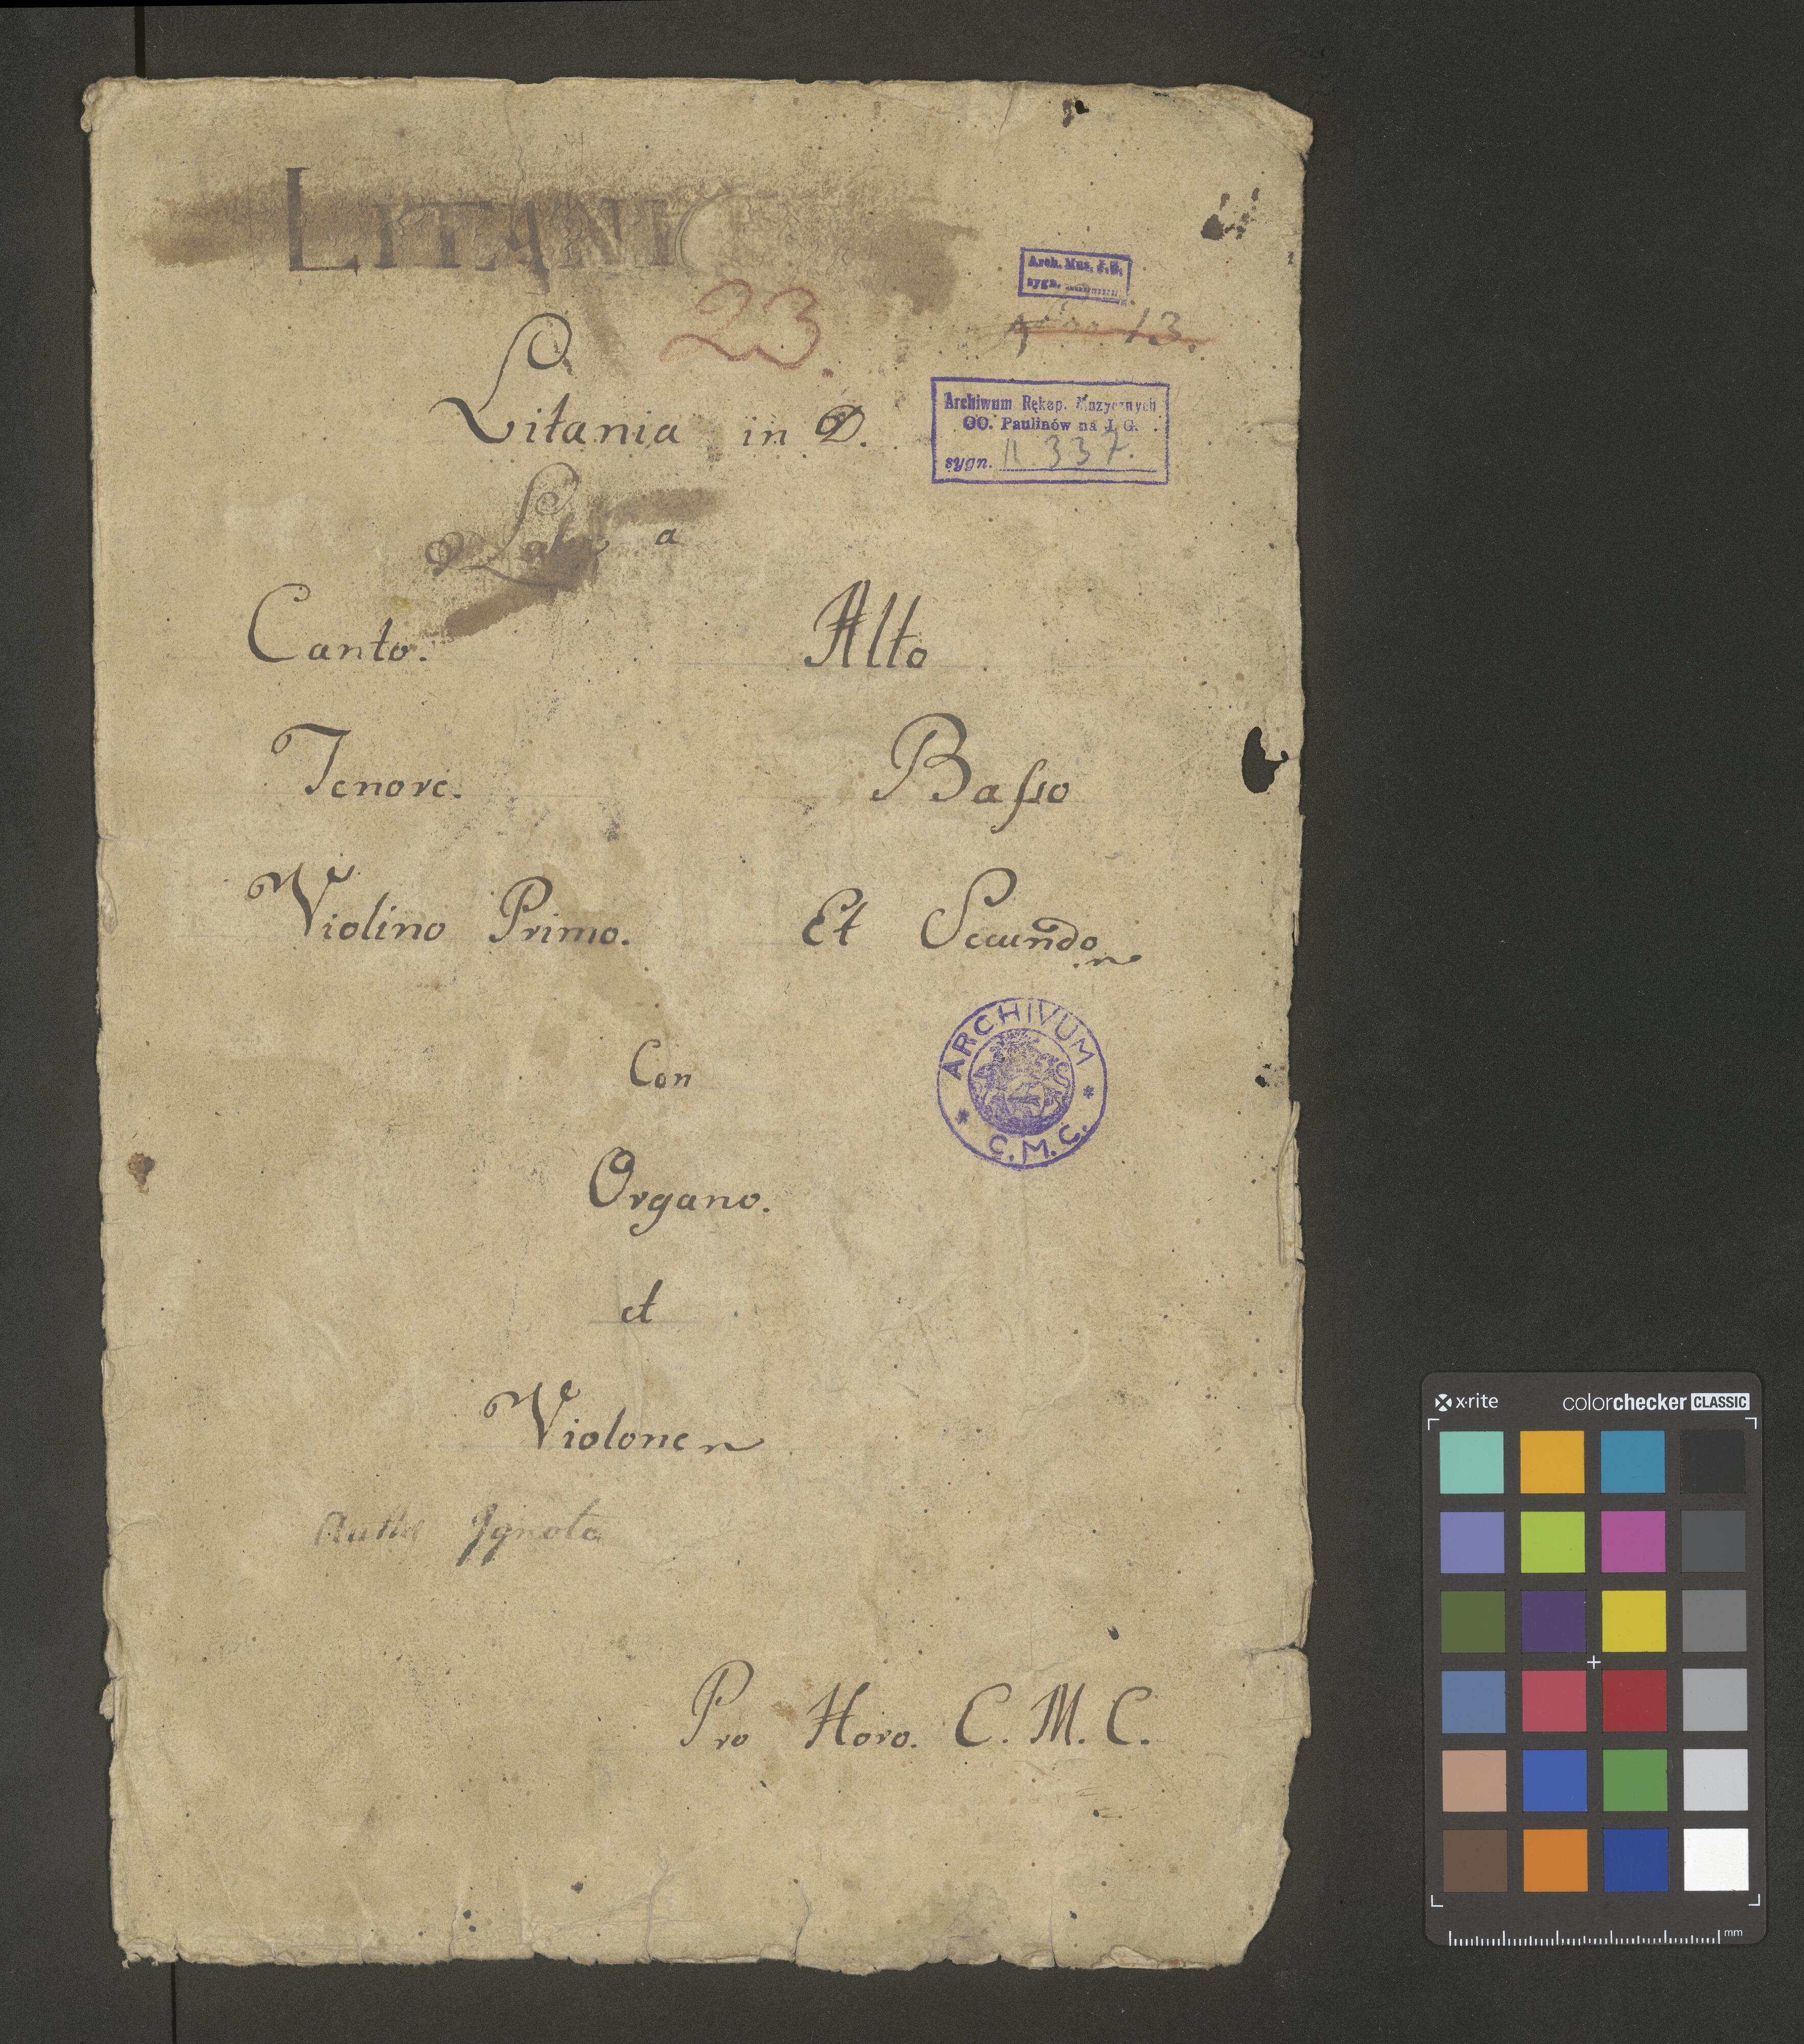 LITANI
Arch. Mus. J. G.
sygn.
23.
13.
Litania in D.
Archiwum Rękop. Muzycznych
OO. Paulinów na J. G.
sygn. II. 337.
a
Canto. Alto
Tenore. Basso
Violino Primo. Et Secundo
ARCHIVUM
C. M. C.
Con
Organo.
et
Violone
Ignoto
Pro Horo. C. M. C.
x·rite colorchecker CLASSIC
mm